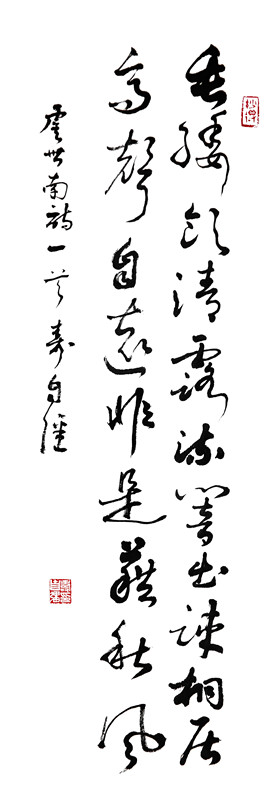 垂緌飲清露流響出疎桐居
高聲自遠非是藉秋風
虞世南詩一首 壽自